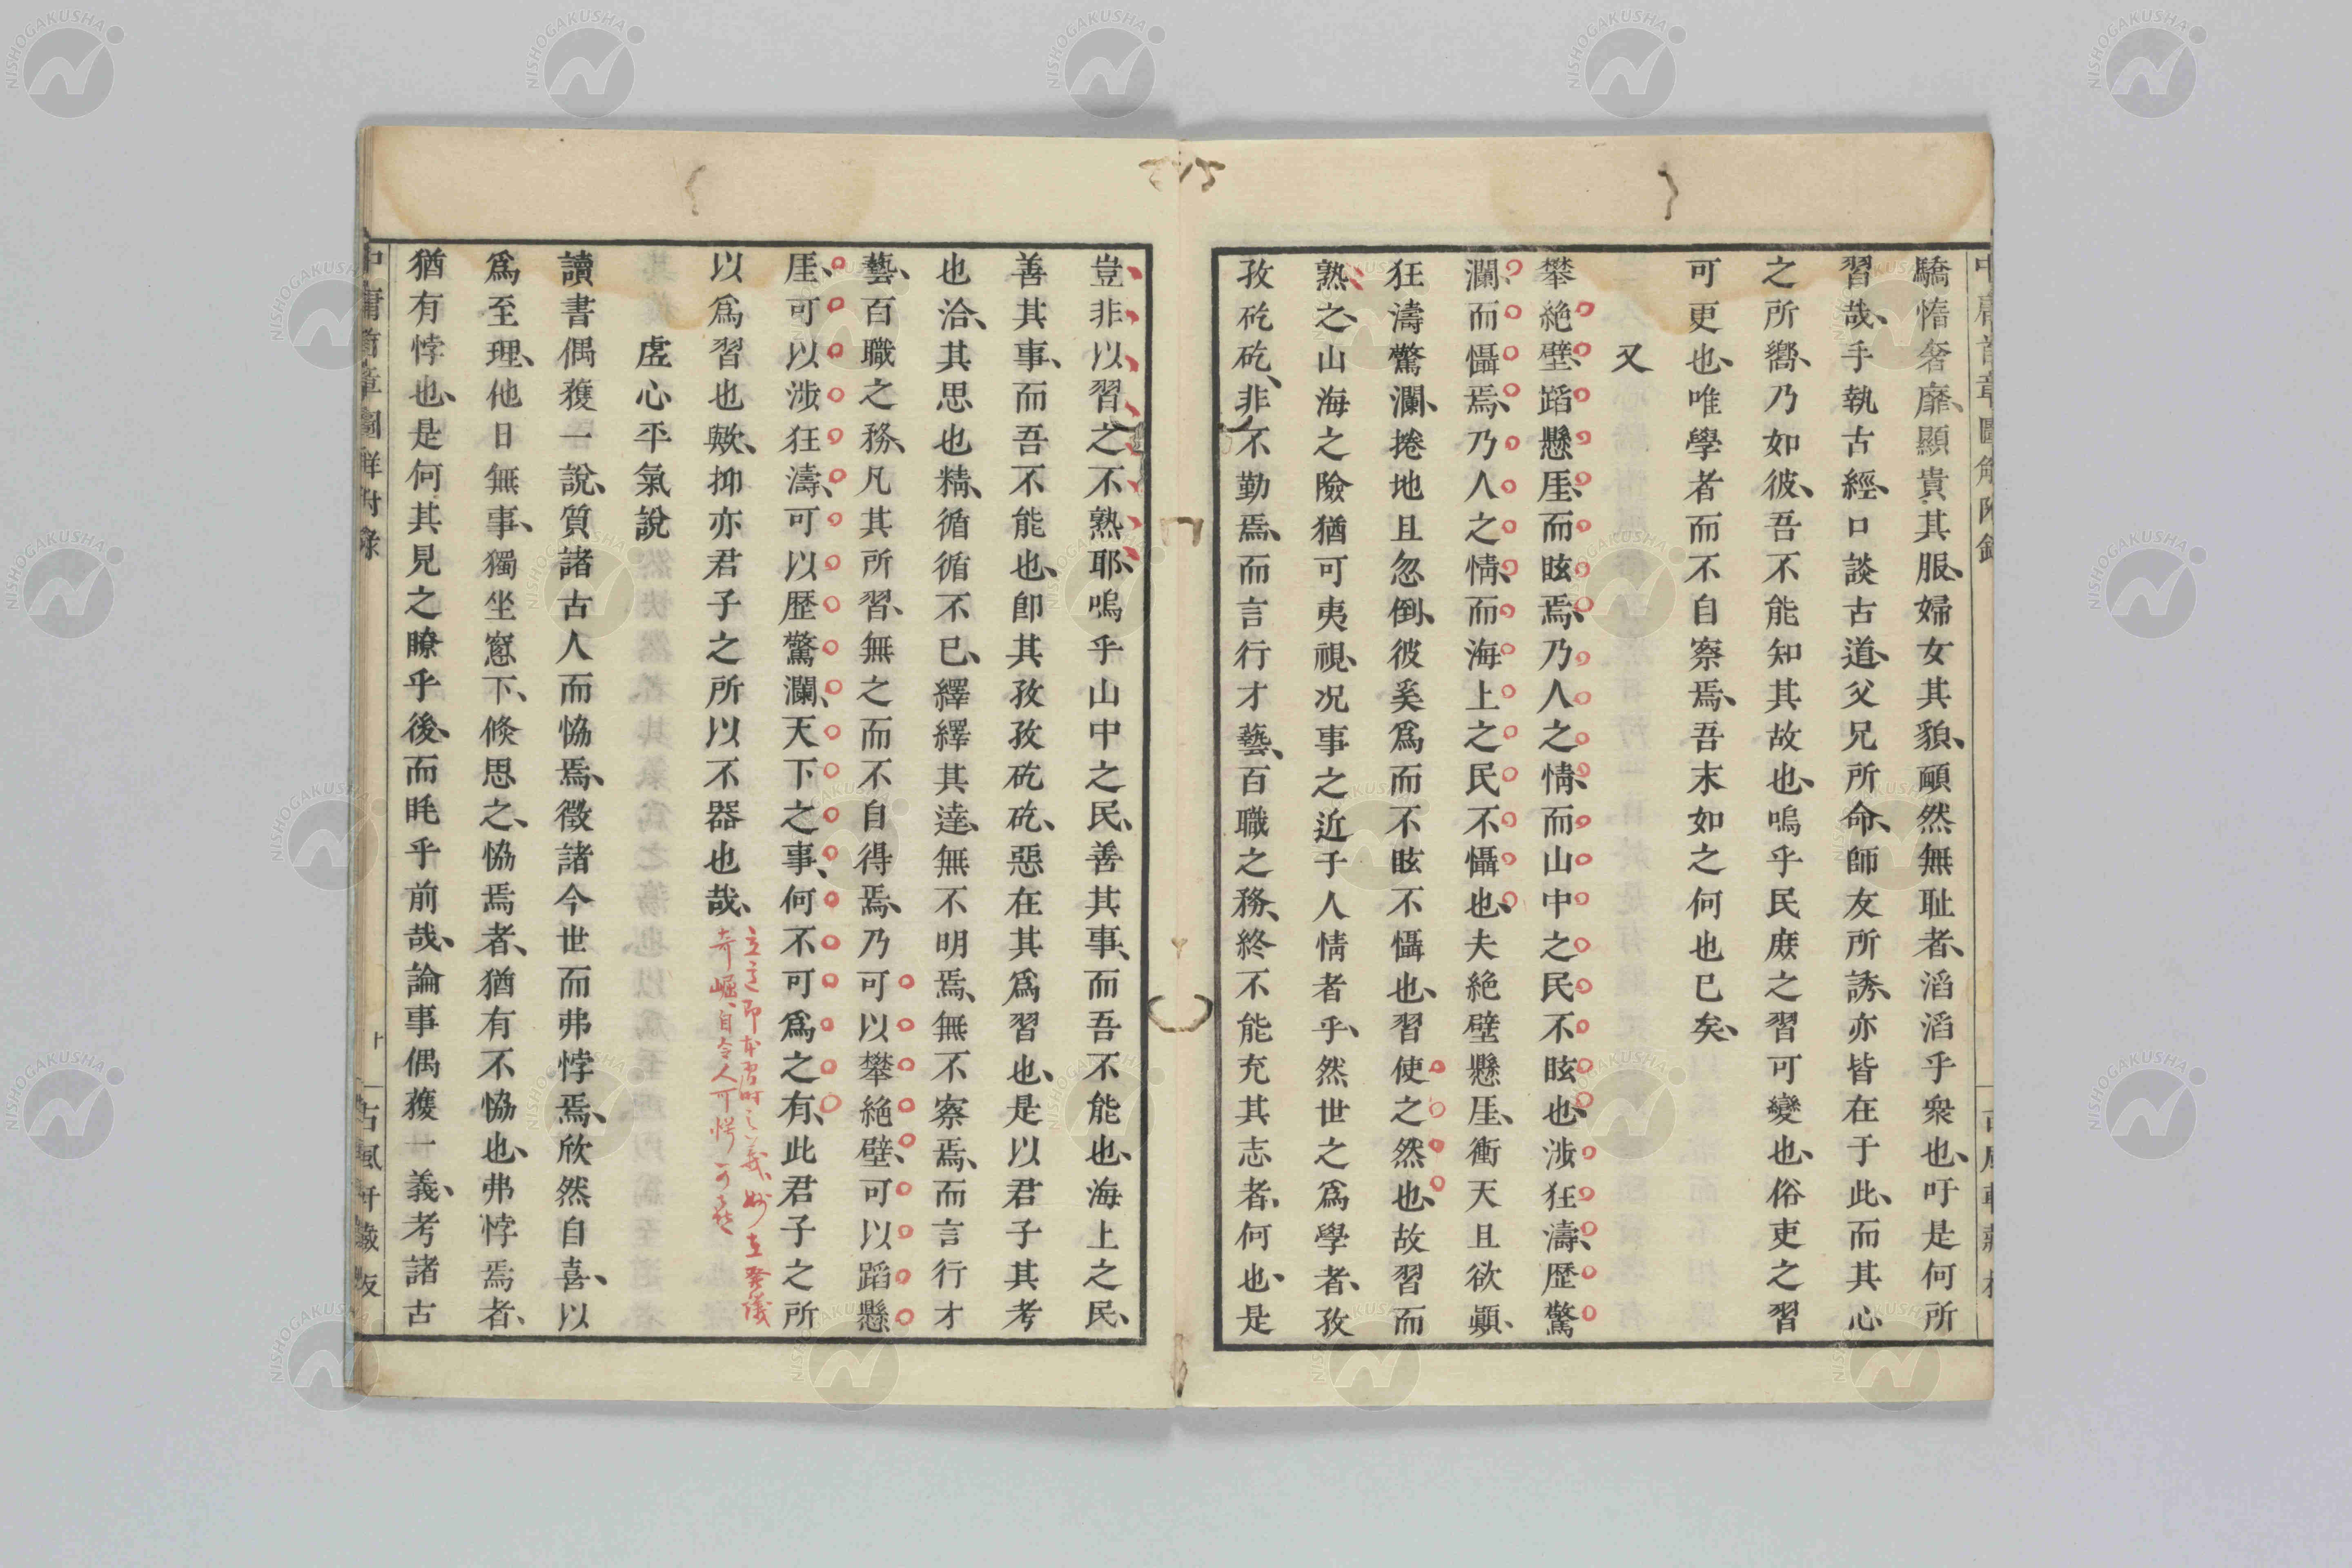 驕惰奢靡、顯貴其服、婦女其貌、頑然無耻者、滔滔乎衆也、吁是何所
習哉、手執古經、口談古道、父兄所命、師友所誘、亦皆在于此、而其心
之所嚮、乃如彼、吾不能知其故也、嗚乎民庶之習可變也、俗吏之習
可更也、唯學者而不自察焉、吾末如之何也已矣、
又
攀絶壁、蹈懸厓、而眩焉、乃人之情、而山中之民不眩也、涉狂濤、歷驚
瀾、而懾焉、乃人之情、而海上之民不懾也、夫絶壁懸厓、衝天且欲顚、
狂濤驚瀾、捲地且忽倒、彼奚爲而不眩不懾也、習使之然也、故習而
熟之、山海之險猶可夷視、況事之近于人情者乎、然世之爲學者、孜
孜矻矻、非不勤焉、而言行才藝、百職之務、終不能充其志者、何也、是
豈非以習之不熟耶、嗚乎山中之民、善其事、而吾不能也、海上之民、
善其事、而吾不能也、卽其孜孜矻矻、惡在其爲習也、是以君子其考
也洽、其思也精、循循不已、繹繹其達、無不明焉、無不察焉、而言行才
藝、百職之務、凡其所習、無之而不自得焉、乃可以攀絶壁、可以蹈懸
厓、可以涉狂濤、可以歷驚瀾、天下之事、何不可爲之有、此君子之所
以爲習也歟、抑亦君子之所以不器也哉、
奇崛、自令人可愕可喜
虛心平氣說
讀書偶獲一說、質諸古人而恊焉、徵諸今世而弗悖焉、欣然自喜、以
爲至理、他日無事、獨坐窻下、倏思之、恊焉者、猶有不恊也、弗悖焉者、
猶有悖也、是何其見之瞭乎後、而眊乎前哉、論事偶獲一義、考諸古
中庸首章圖解附錄
十
古風軒藏板